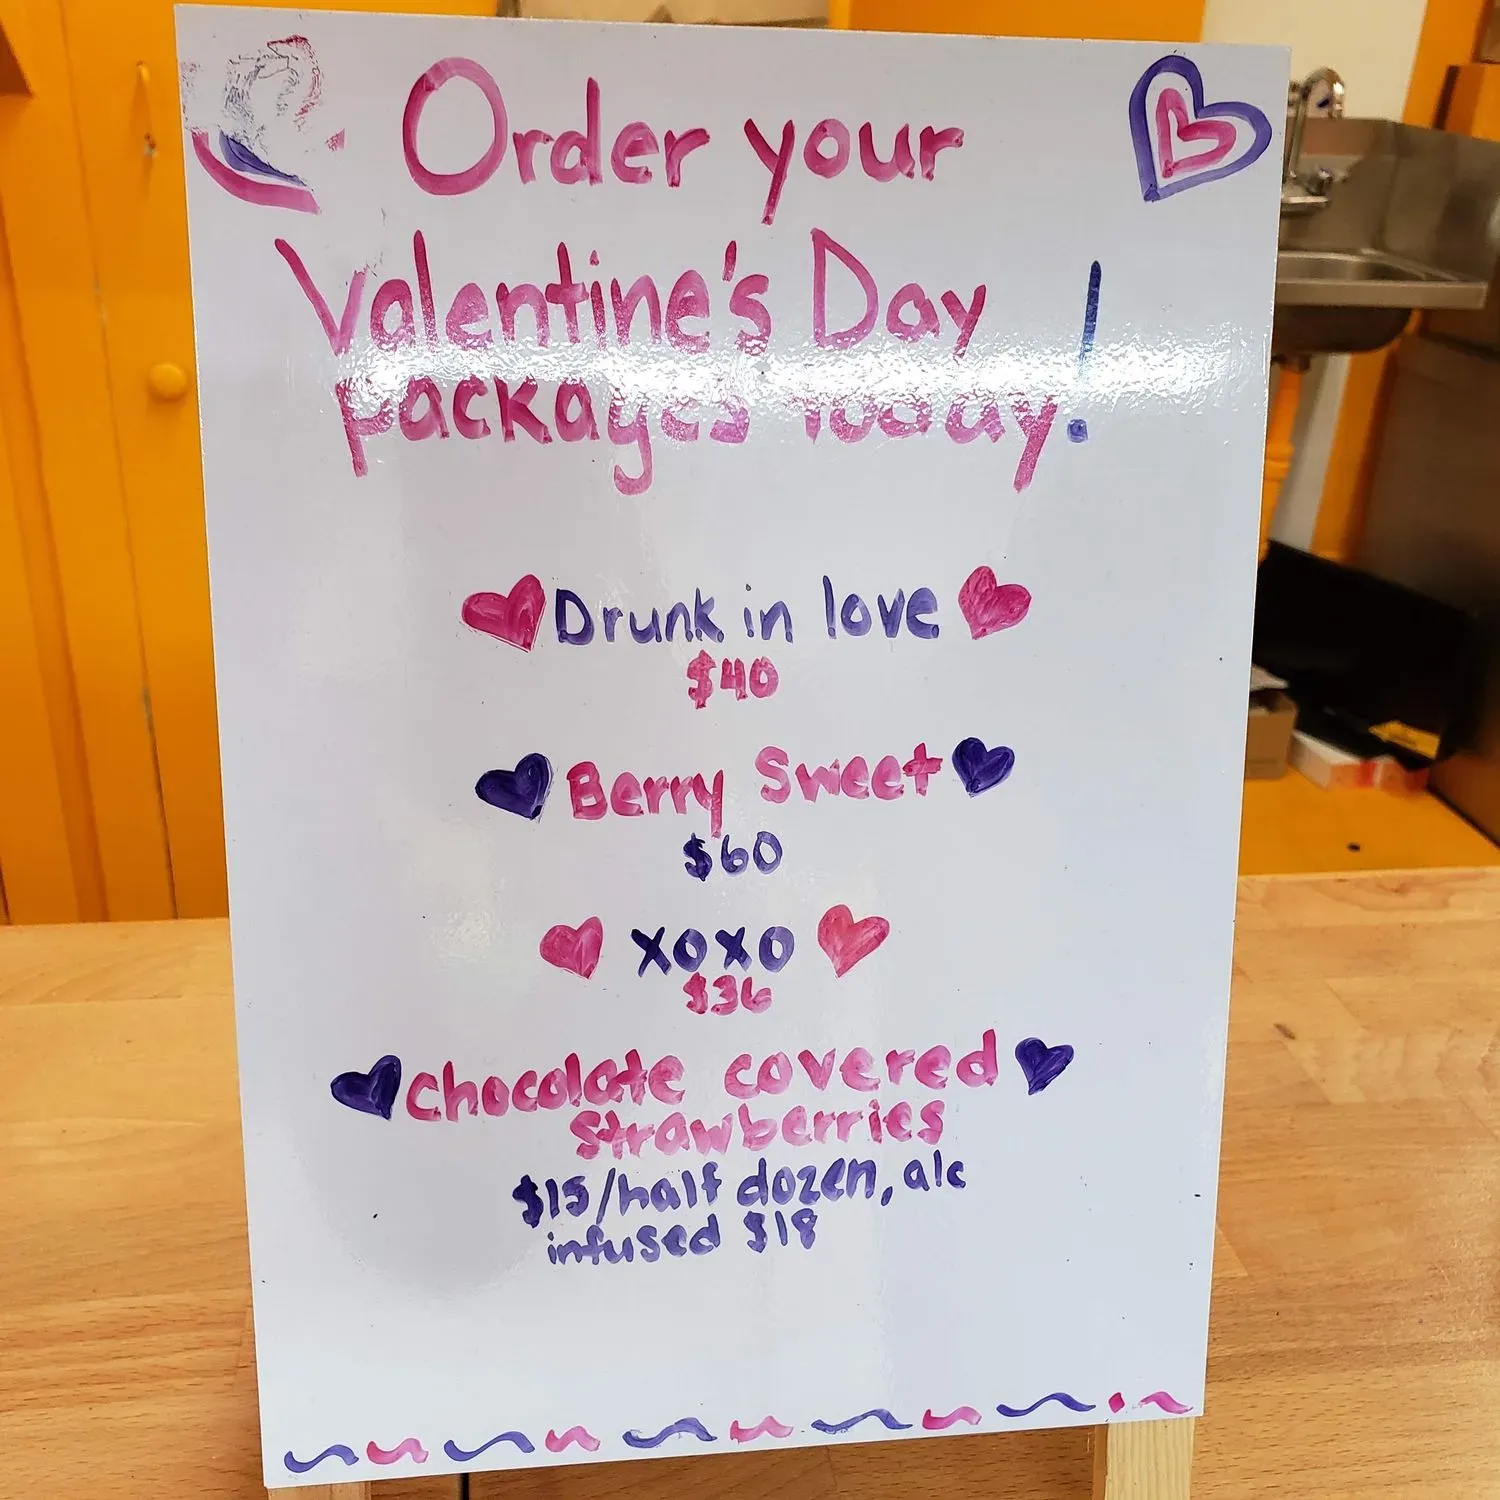 Order your
Valentine's Day
packages today!
Drunk in love
$40
Berry Sweet
$60
xoxo
$36
Chocolate covered
Strawberries
$15/half dozen, alc
infused $18